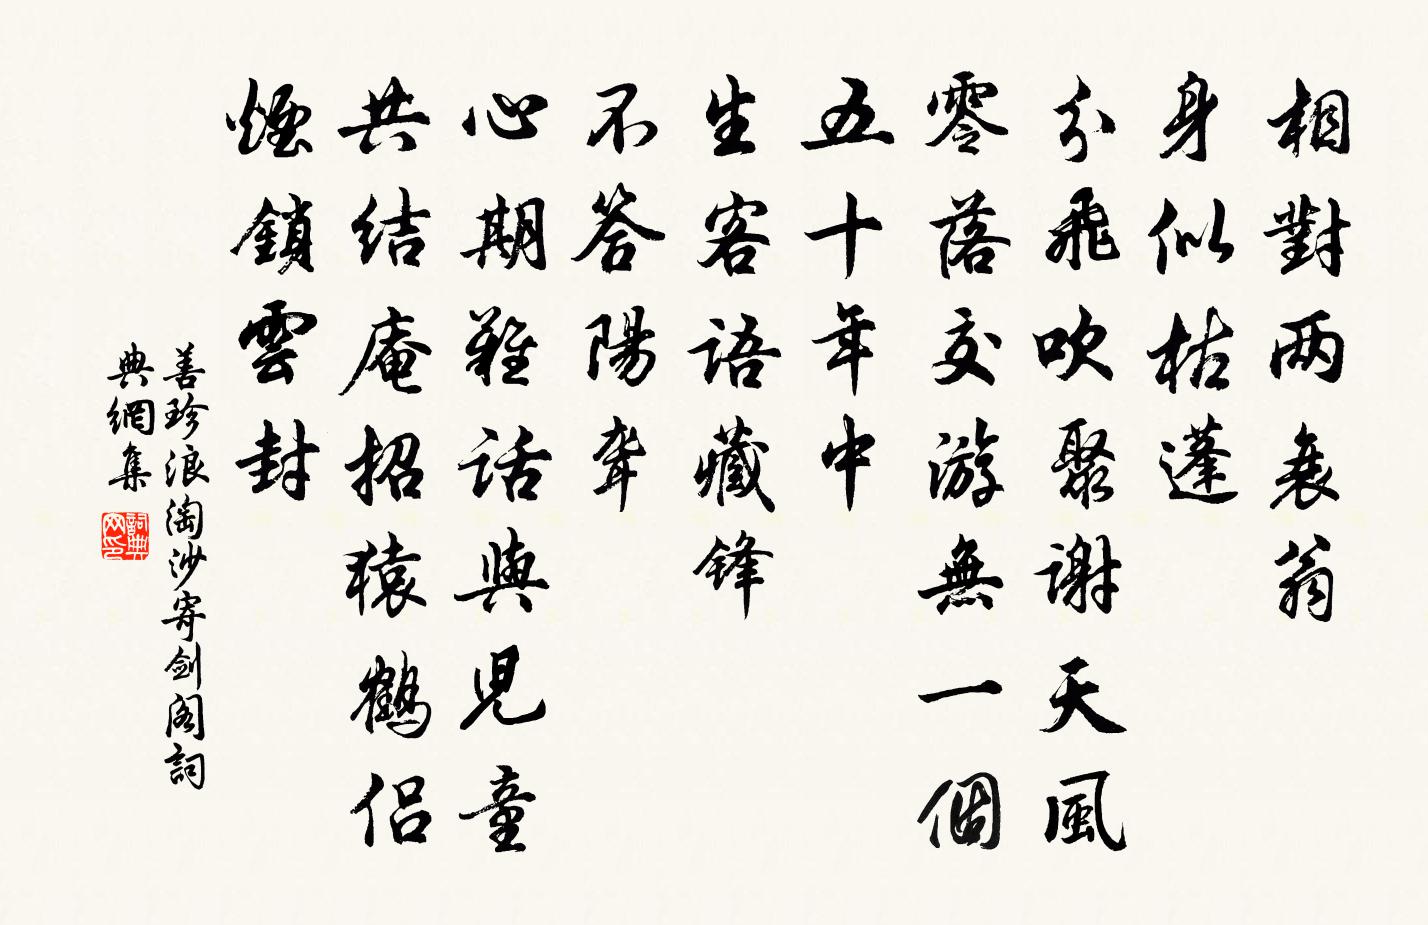 相對两衰翁
身似枯蓬
分飛吹聚謝天風
零落交游無一個
五十年中
生客語藏鋒
不答陽聾
心期難話與児童
共結庵招猿鶴侣
煙鎖雲封
善珍浪淘沙寄剑阁詞
典網集
詞典
网印